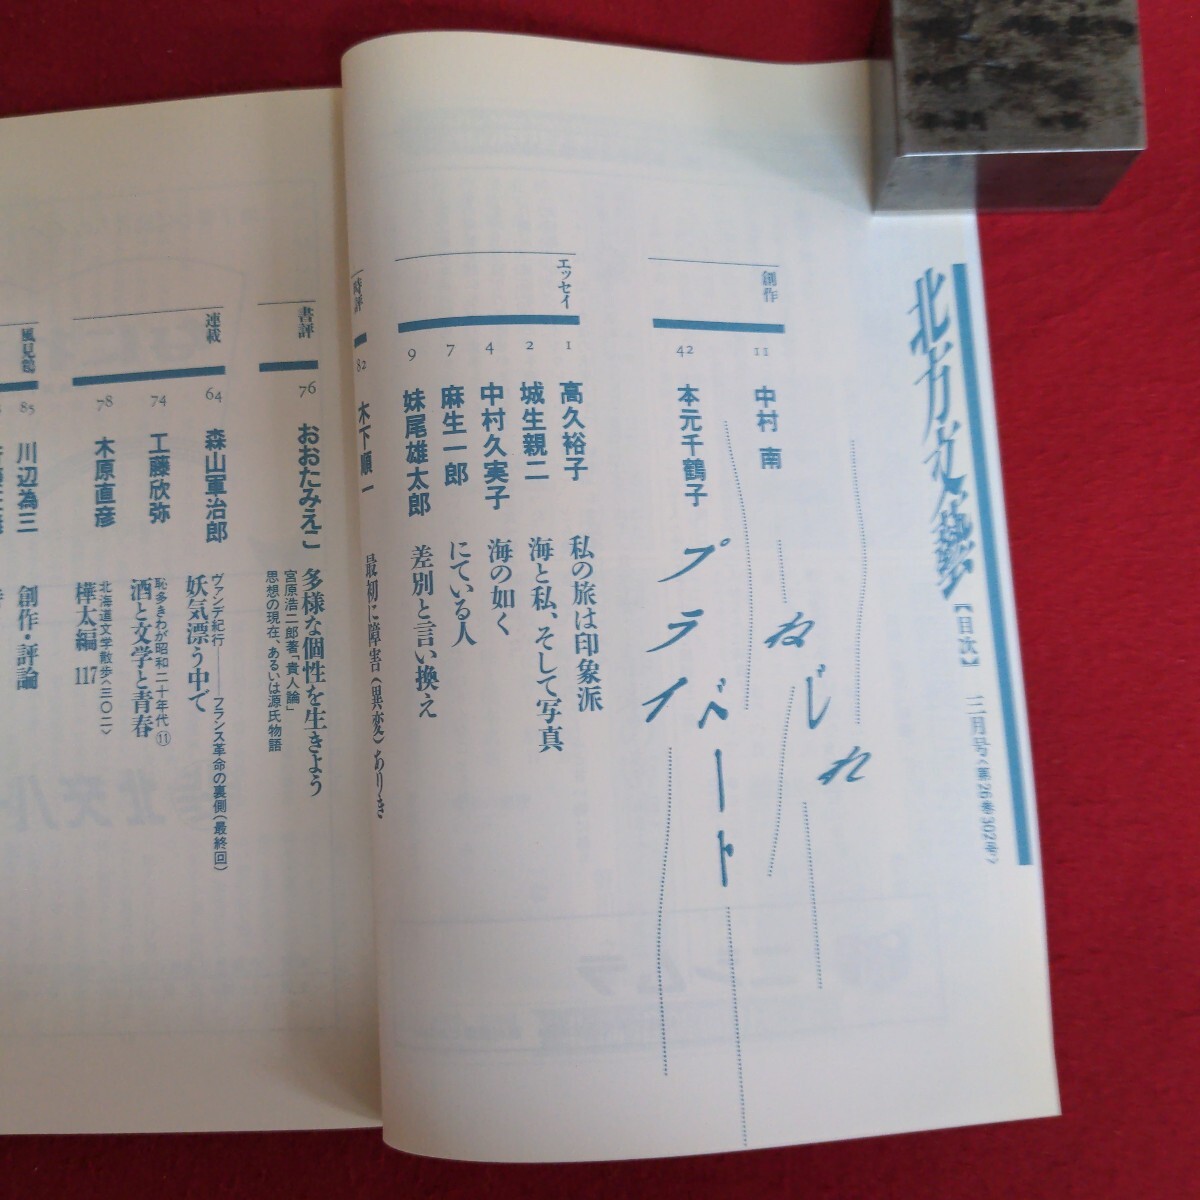 北方文藝
【目次】
三月号〈第26巻302号〉
創作
11
中村 南
ねじれ
42
本元千鶴子
プライベート
エッセイ
1
高久裕子
私の旅は印象派
2
城生親二
海と私、そして写真
4
中村久実子
海の如く
7
麻生一郎
にている人
9
妹尾雄太郎
差別と言い換え
時評
82
木下順一
最初に障害(異変)ありき
書評
76
おおたみえこ
多様な個性を生きよう
宮原浩二郎著「貴人論」
思想の現在、あるいは源氏物語
連載
64
森山軍治郎
ヴァンデ紀行――フランス革命の裏側(最終回)
妖気漂う中で
74
工藤欣弥
恥多きわが昭和二十年代⑪
酒と文学と青春
78
木原直彦
北海道文学散歩〈三〇二〉
樺太編 117
風見鶏
85
川辺為三
創作・評論